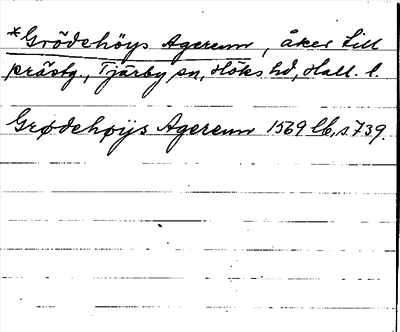 *Grödehöys Agerenn, åker till
prästg., Tjärby sn, Höks hd, Hall. l.
Grødehøÿs Agerenn 1569 lb, s 739.